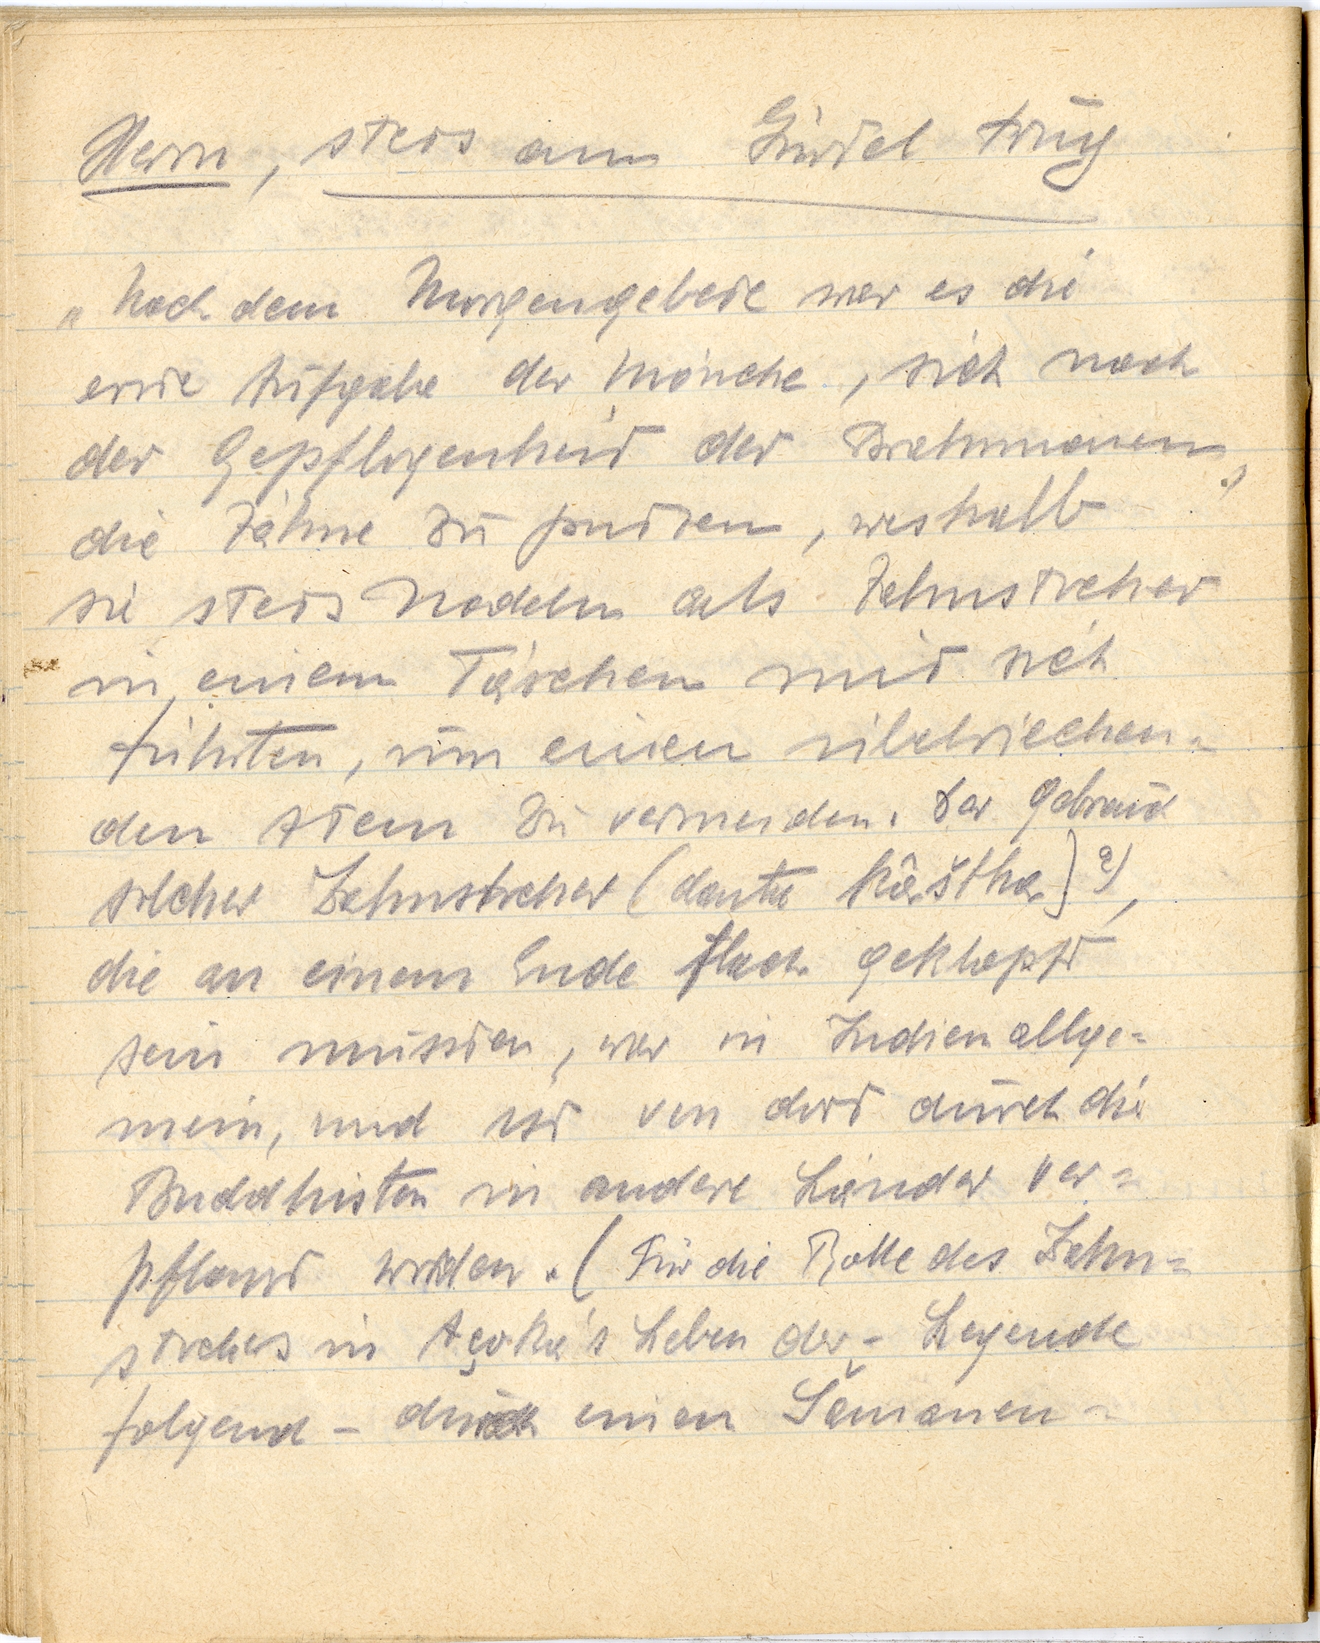 Herrn, stets am Gürtel trug
„Nach dem Morgengebete war es die
erste Aufgabe der Mönche, sich nach
der Gepflogenheit der Brahmanen,
die Zähne zu putzen, weshalb
sie stets Nadeln als Zahnstocher
in einem Täschchen mit sich
führten, um einen übelriechen-
den Atem zu vermeiden. Der Gebrauch
solcher Zahnstocher (danta kâštha) a),
die an einem Ende flach geklopft
sein mussten, war in Indien allge=
mein, und ist von dort durch die
Buddhisten in andere Länder ver=
pflanzt worden. (Für die Rolle des Zahn=
stochers in Açoka's Leben der - Legende
folgend - durch einen Šamanen -